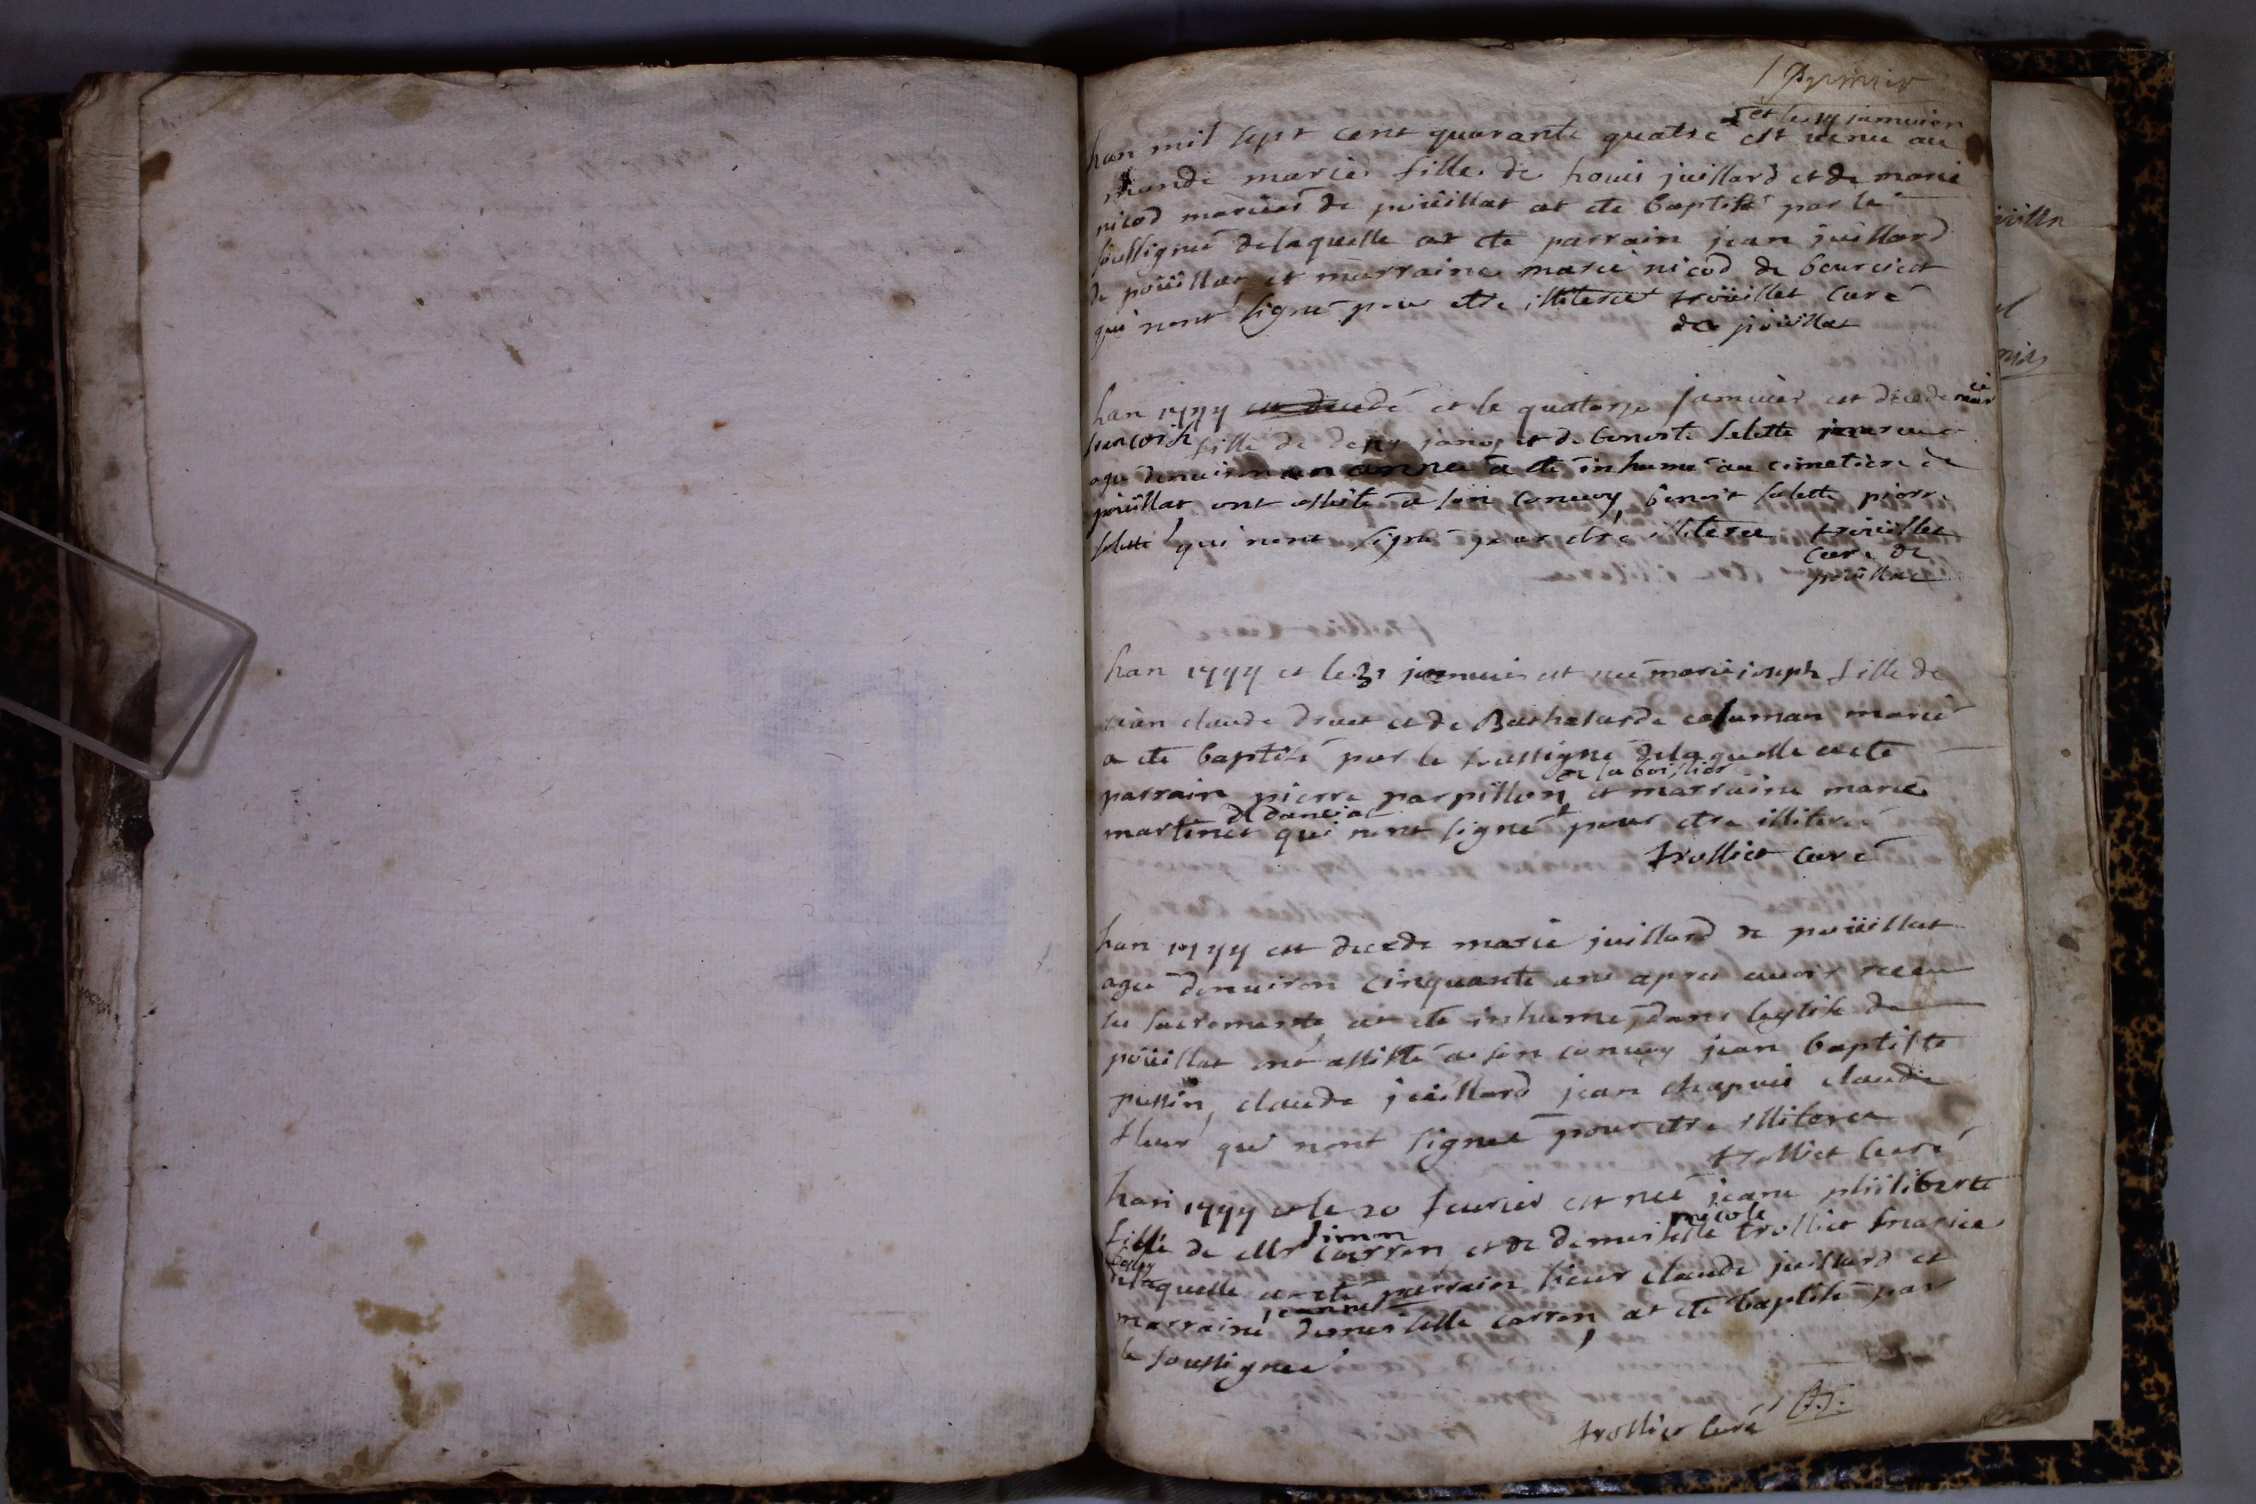 premier
et le 19 januier
han mil sept cent quarante quatre est venu au
monde marie fille de louis juillard et de marie
nicod mariés de poüillat at ete baptisé par le
soussigné delaquelle at ete parrain jean juillard
de poüillat et marraine marie nicod de bourcia
qui nont signé pour etre illiteré trollliet curé
de poüillat
han 1744 est decedé et le quatorze januier est decedé
francoise fille de deny et de benoiste selette
agé denuiron un anne a ete inhumé au cimetiere de
poüillat ont assisté a son conuoy benoit selette pierre
selette qui nont signé pour etre illiteré trolliet
curé de
poüillat
han 1744 et le 31 januier est née marie joseph fille de
jean claude druet et de marié
a ete baptisé par le soussigné delaquelle a ete
parrain pierre parpillon et marraine marie
de danciat
martinet qui nont signé pour etre illiteré
trolliet curé
han 1744 est decedé marie juillard de poüillat
agé denuiron cinquante ans apres auoir receu
les sacrements at ete inhumé dans leglise de
poüillat ont assisté a son conuoy jean baptiste
pussin, claude juillard jean chapuis claude
fleur qui nont signé pour etre illiteré
trolliet curé
han 1744 et le 20 feurier est née jeane philiberte
simon nicole
fille de mr carron et de demoiselle trolliet mariés
delaquelle at ete parrain sieur claude juillard et
jeanne
marraine demoiselle carron, at ete baptisé par
le soussigneé
trolliet curé